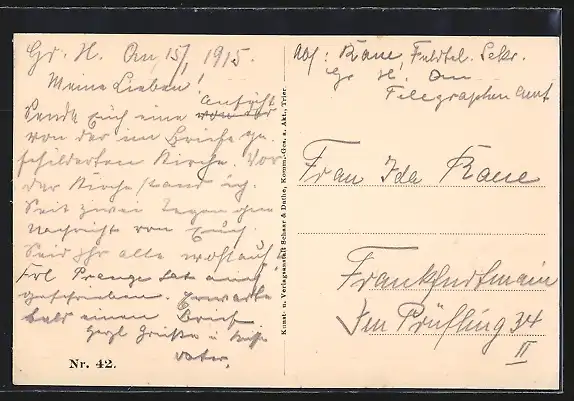 Gr. H. Qu, 15/7, 1915.
Meine Lieben!
Sende Euch eine Ansicht von der
von der im Briefe ge-
schilderten Kirche. Vor
der Kirche stand ich.
Seit zwei Tagen gen
Nachricht von Euch.
Seid Ihr alle wohlauf?
Frl Prenge hat auch
geschrieben. Erwarte
bald einen Brief
Herzl Grüße u Küsse
Vater.
Nr. 42.
Kunst- u. Verlagsanstalt Schaar & Dathe, Komm.-Ges. a. Akt., Trier.
Abs: Kaue, Feldtel. Sekr.
Gr. H. Qu
Telegraphen Amt
Frau Ida Kaue
Frankfurtmain
Im Prüfling 34
II